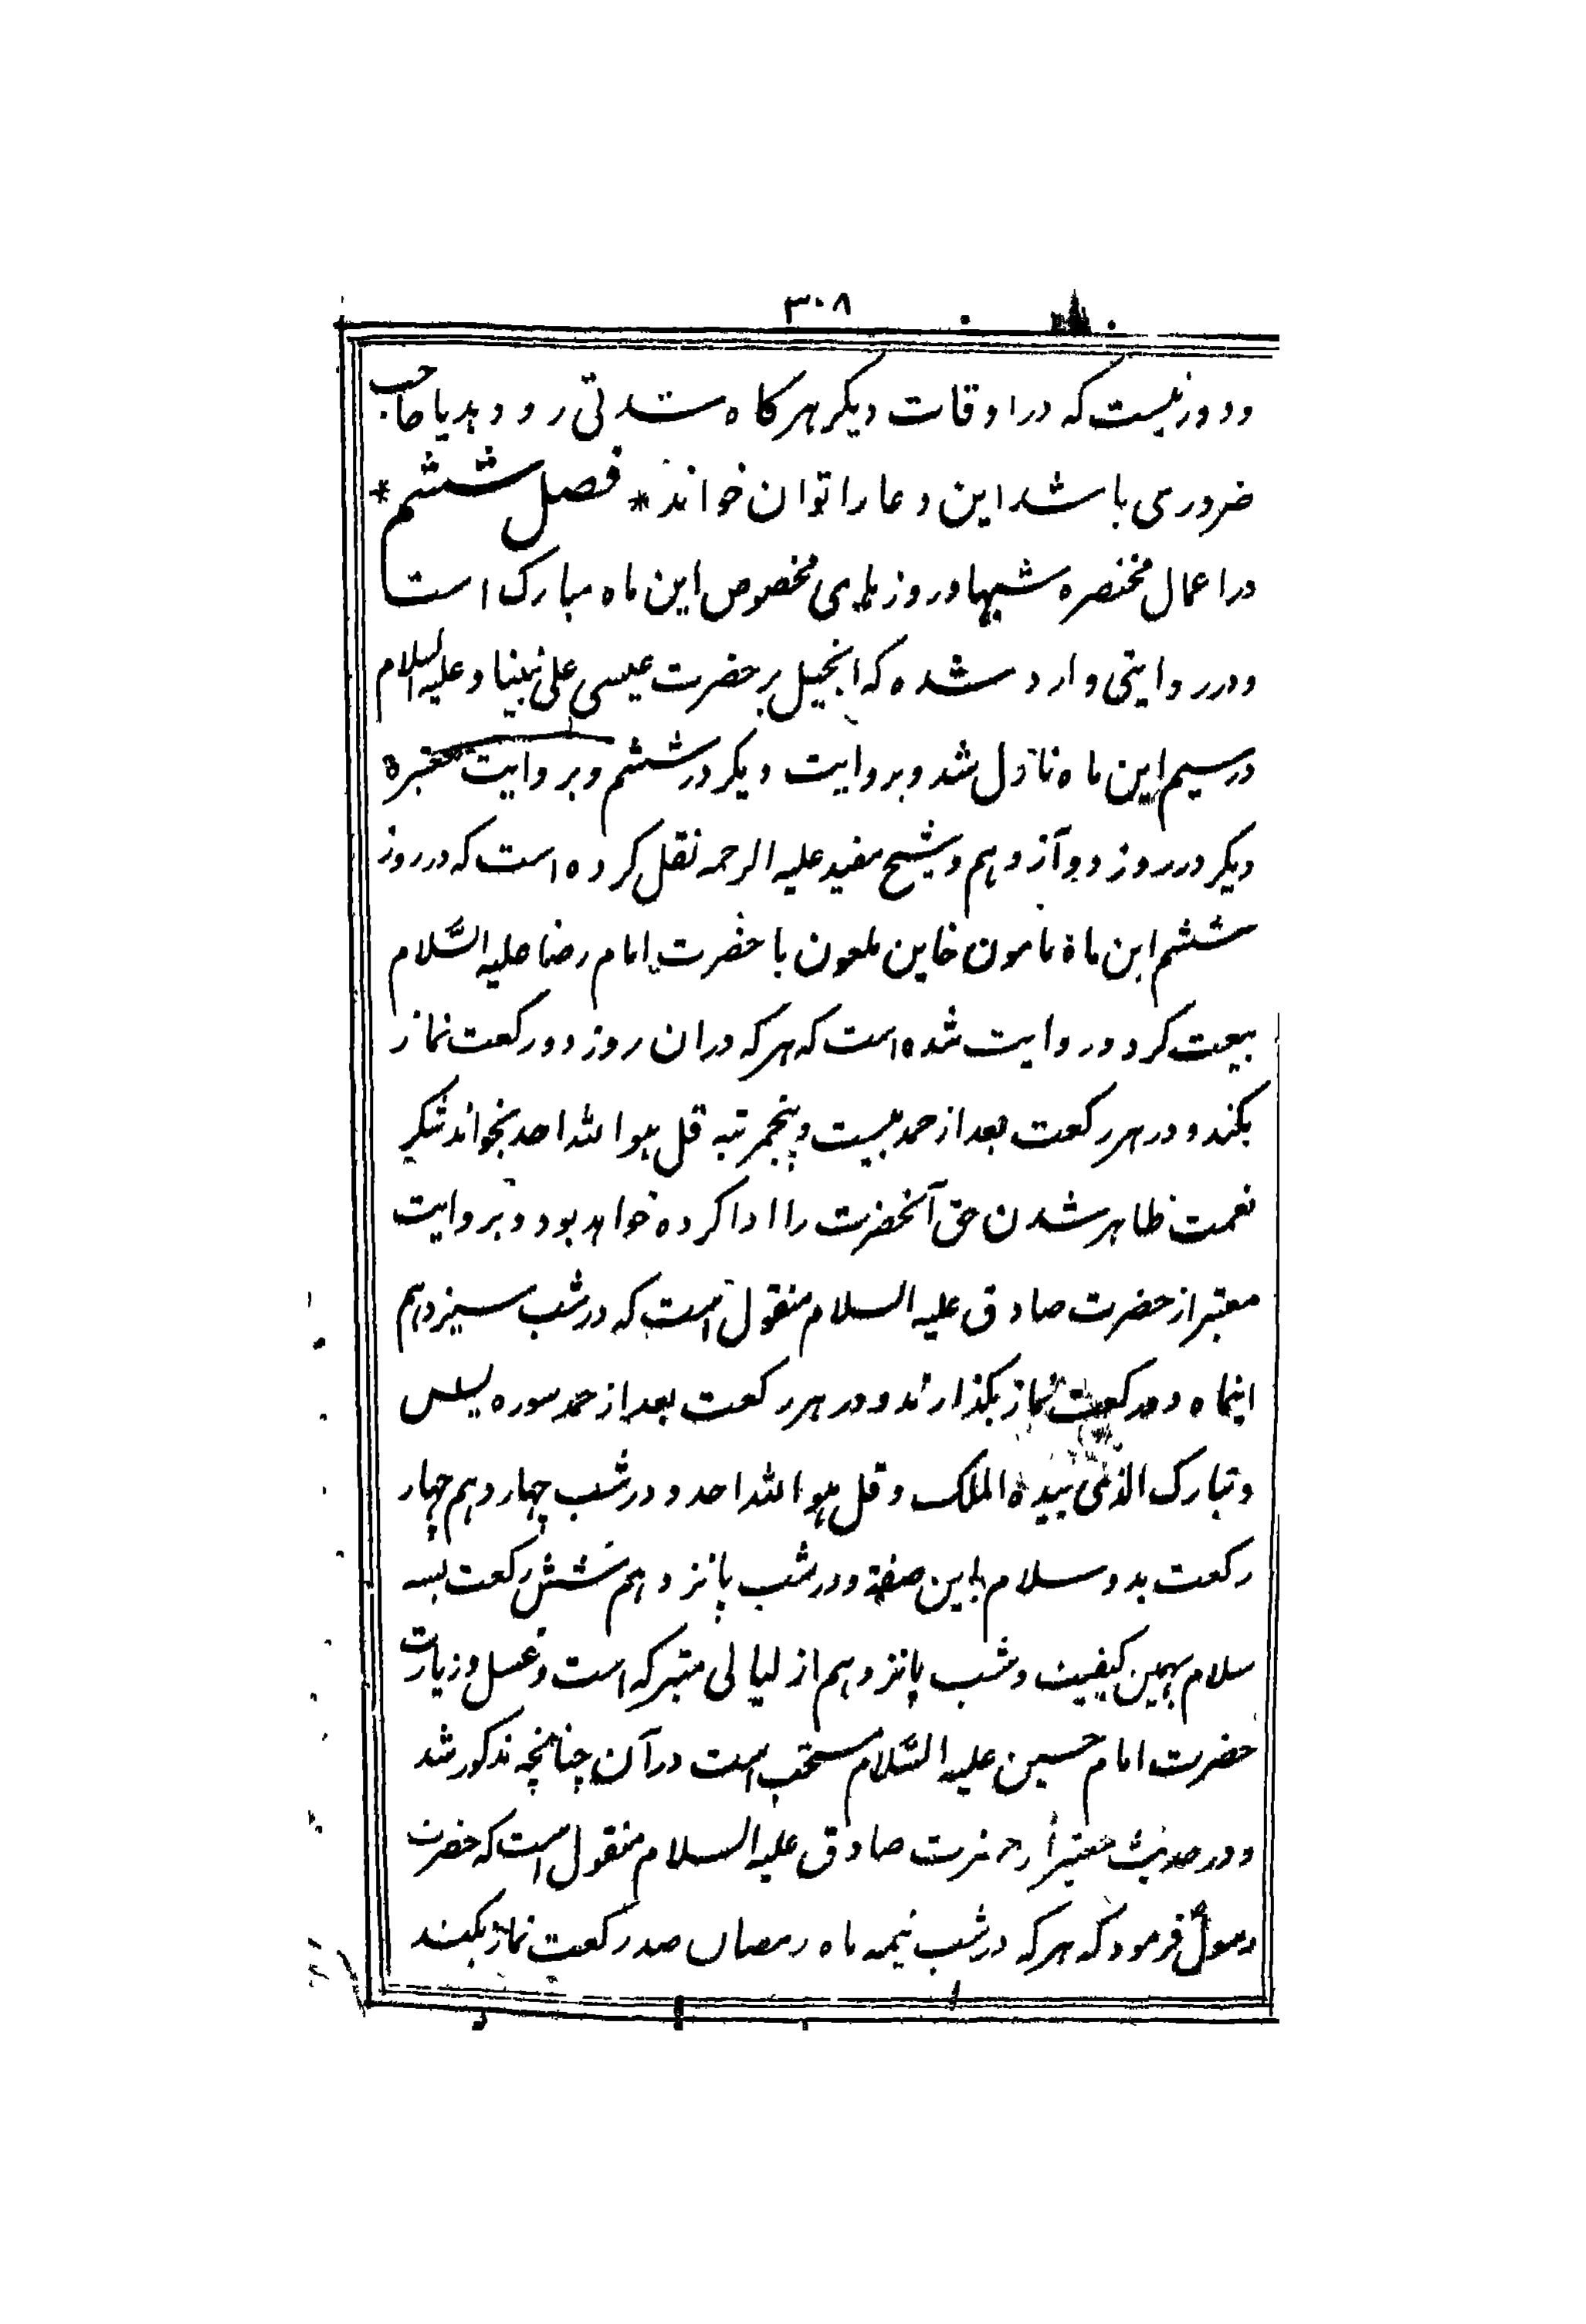 ۳۰۸
ودور نیست که در اوقات دیکر هرکاه شدتی رو دهد یا حاجب
ضروری باشد این دعا را توان خواند * فصل ششم *
در اعمال مختصره شبها و روزهای مخصوص این ماه مبارک است
و در روایتی وارد شده که انجیل بر حضرت عیسی علی نبینا و علیه السلام
در سیم این ماه نازل شد و بروایت دیکر در ششم و بروایت معتبره
دیکر در روز دوآزدهم و شیخ مفید علیه الرحمه نقل کرده است که در روز
ششم این ماه مامون خاین ملعون با حضرت امام رضا علیه السَّلام
بیعت کرد و روایت شده است که هر که در ان روز دو رکعت نماز
بکند و در هر رکعت بعد از حمد بیست و پنجمرتبه قل هو الله احد بخواند شکر
نعمت ظاهر شدن حق آنحضرت را ادا کرده خواهد بود و بروایت
معتبر از حضرت صادق علیه السلام منقول است که در شب سیزدهم
اینماه دو رکعت نماز بکذارند و در هر رکعت بعد از حمد سوره یس
و تبارک الذی بیده الملک و قل هو الله احد و در شب چهاردهم چهار
رکعت بدو سلام باین صفة و در شب پانزدهم شش رکعت بسه
سلام بهمین کیفیت و شب پانزدهم از لیالی متبرکه است و غسل و زیارت
حضرت امام حسین علیه السَّلام مستحب است در آن چنانچه مذکور شد
و در حدیث معتبر از حضرت صادق علیه السلام منقول است که حضرت
رسول فرمود که هر که در شب نیمه ماه رمضان صد رکعت نماز بکند